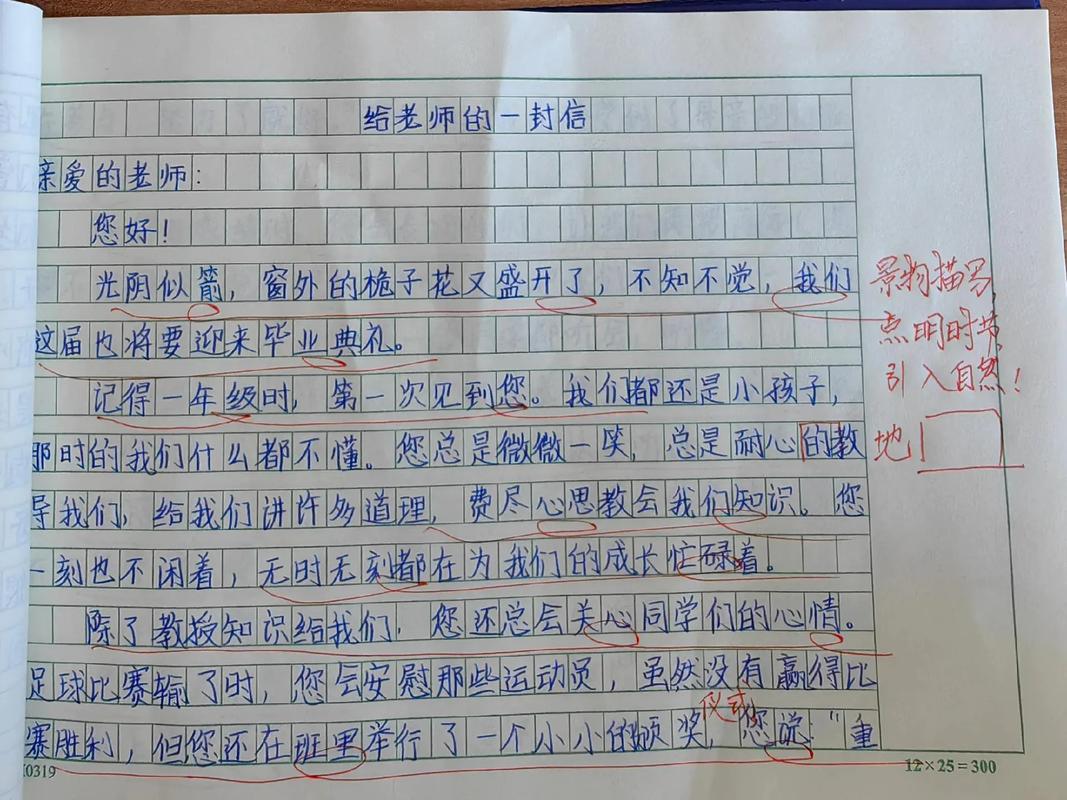 给老师的一封信
亲爱的老师：
您好！
光阴似箭，窗外的桅子花又盛开了，不知不觉，我们
这届也将要迎来毕业典礼。
记得一年级时，第一次见到您。我们都还是小孩子，
那时的我们什么都不懂。您总是微微一笑，总是耐心的教
导我们，给我们讲许多道理，费尽心思教会我们知识。您
一刻也不闲着，无时无刻都在为我们的成长忙碌着。
除了教授知识给我们，您还总会关心同学们的心情。
足球比赛输了时，您会安慰那些运动员，虽然没有赢得比
赛胜利，但您还在班里举行了一个小小的颁奖，您说："重
仪式
景物描写
点明时节
引入自然！
地
0319
12×25=300